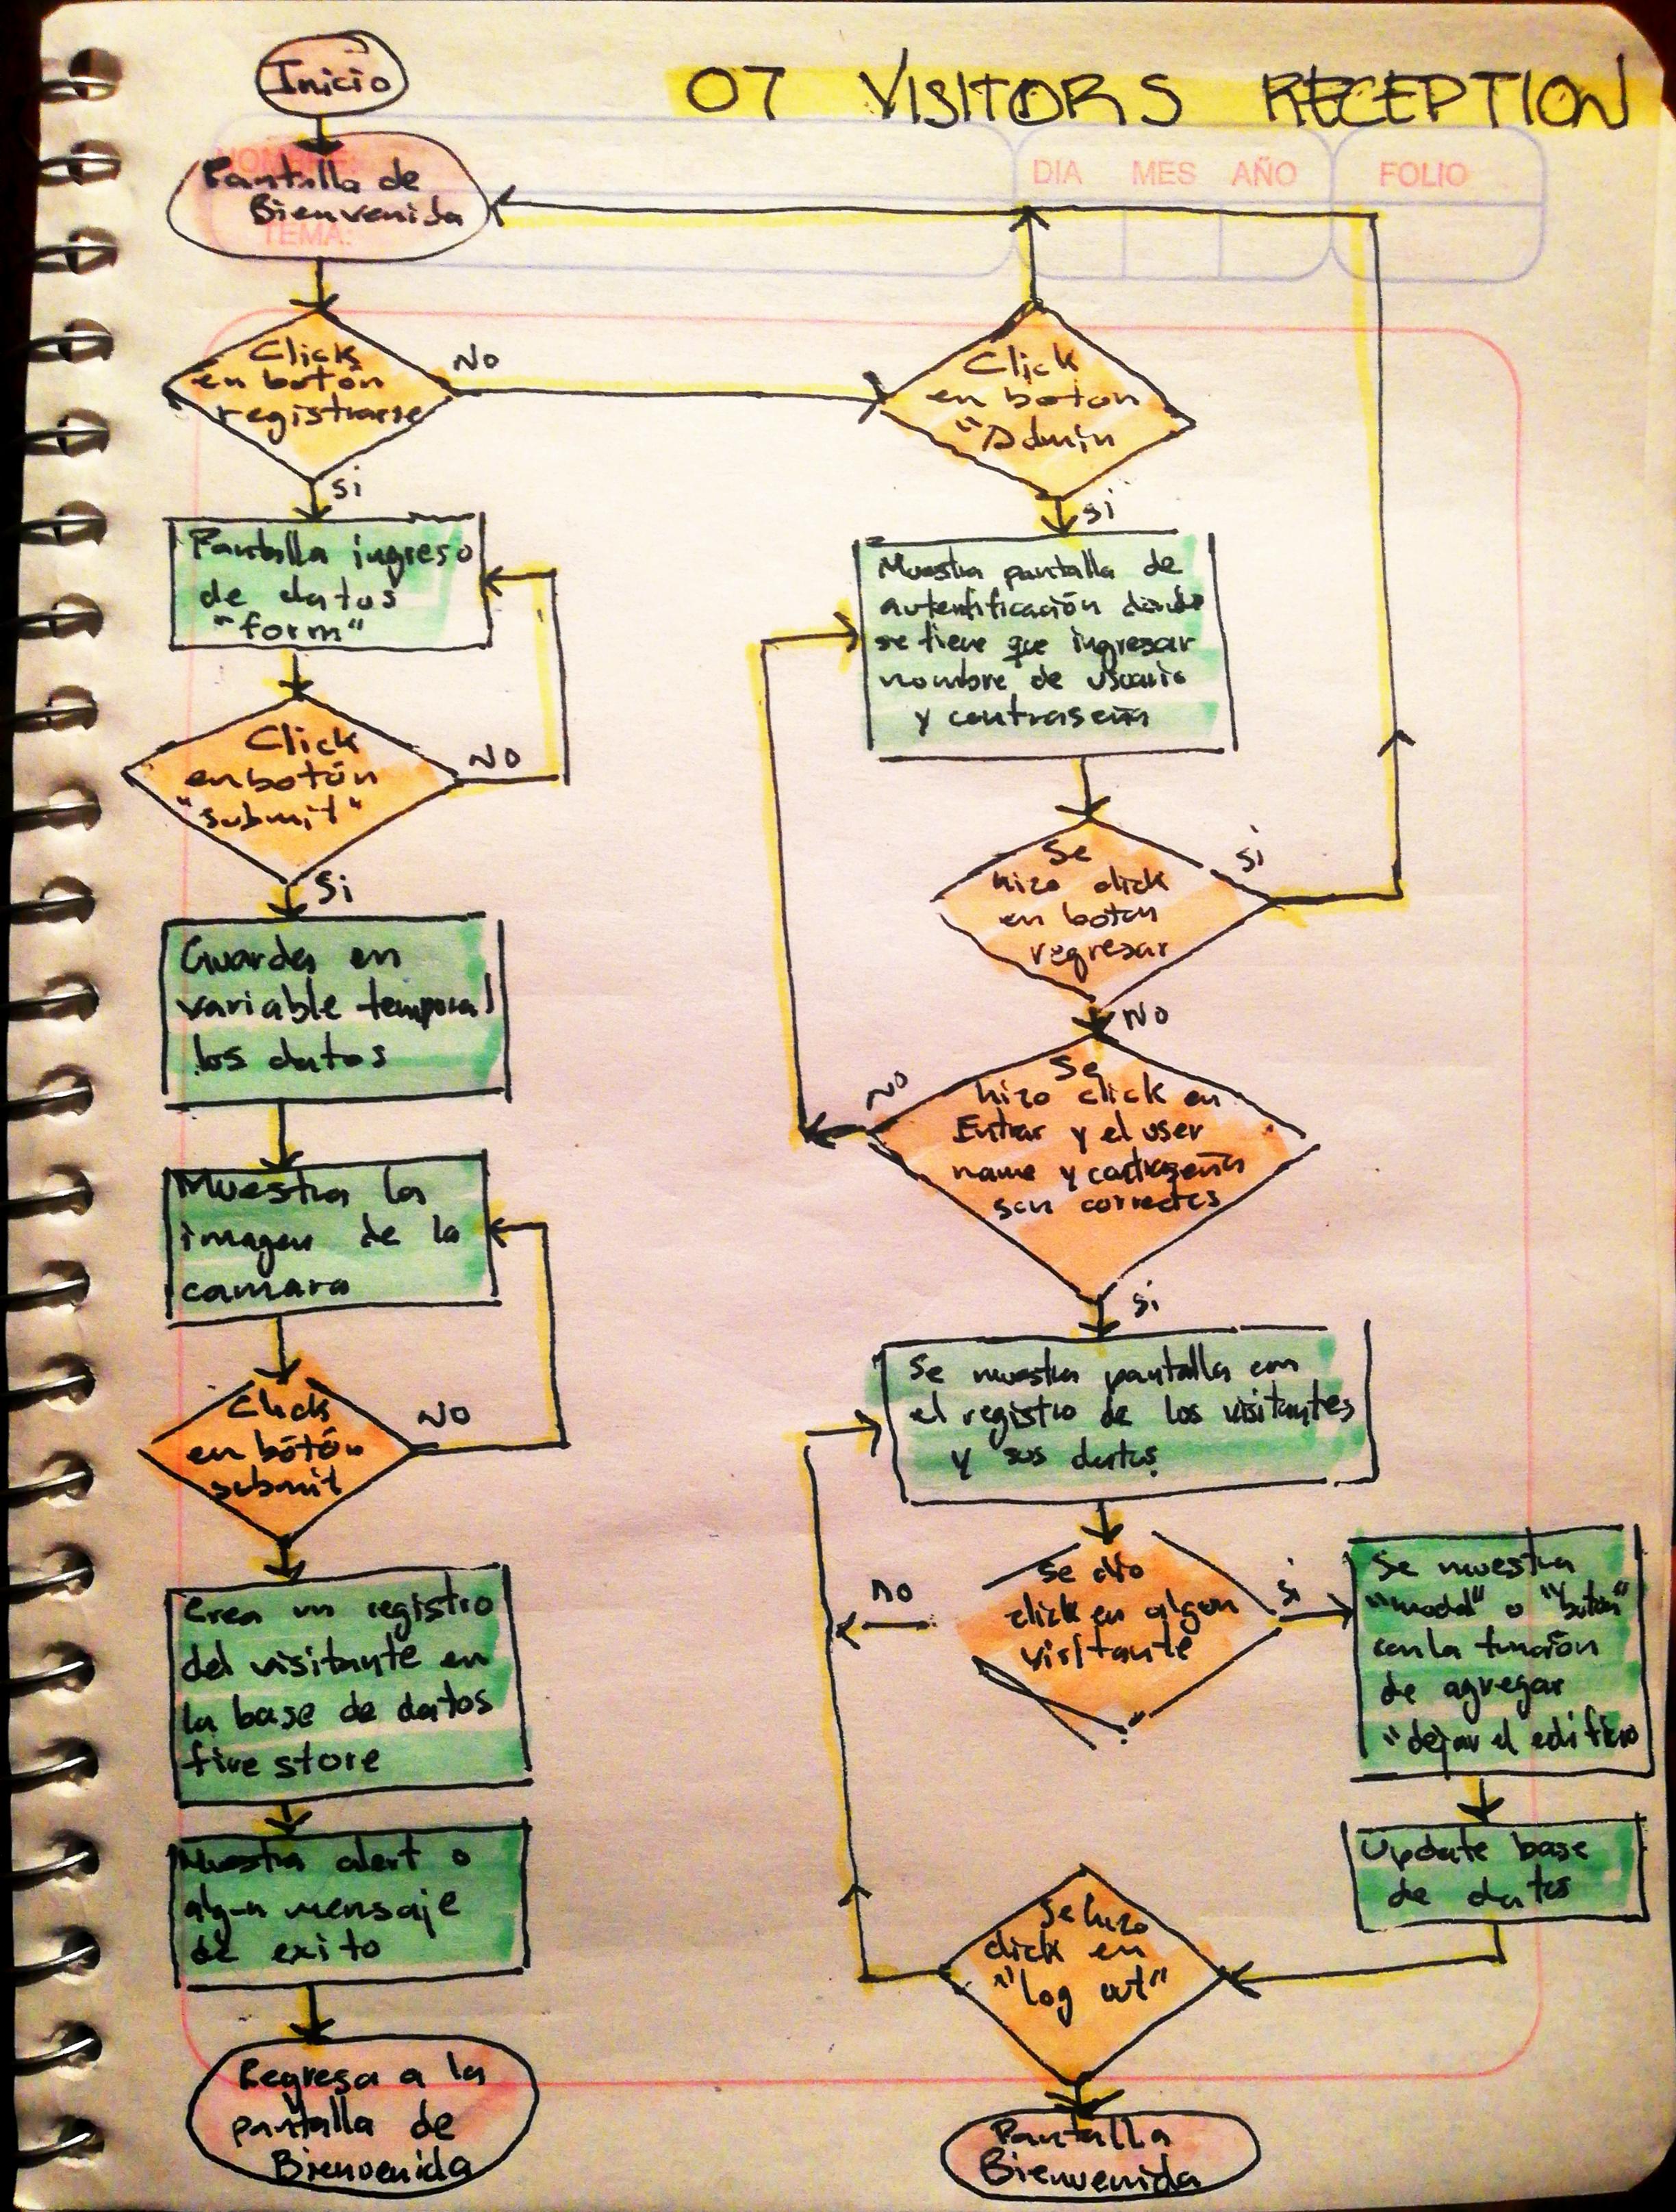 07 VISITORS RECEPTION
NOMBRE:
TEMA:
DIA MES AÑO FOLIO
Inicio
Pantalla de
Bienvenida
Click
en botón
registrarse
No
si
Pantalla ingreso
de datos
"form"
Click
en botón
"submit"
NO
Si
Guarda en
variable temporal
los datos
Muestra la
imagen de la
camara
Click
en botón
submit
NO
Crea un registro
del visitante en
la base de datos
fire store
Muestra alert o
algun mensaje
de exito
Regresa a la
pantalla de
Bienvenida
Click
en boton
"Admin
si
Muestra pantalla de
autentificación donde
se tiene que ingresar
nombre de usuario
y contraseña
Se
hizo click
en boton
regresar
Si
NO
Se
hizo click en
Entrar y el user
name y contraseña
son correctas
NO
si
Se muestra pantalla con
el registro de los visitantes
y sus datos
se dio
click en algun
visitante
no
si
Se muestra
"modal" o "boton"
con la función
de agregar
"dejar el edificio
Update base
de datos
Se hizo
click en
"log out"
Pantalla
Bienvenida